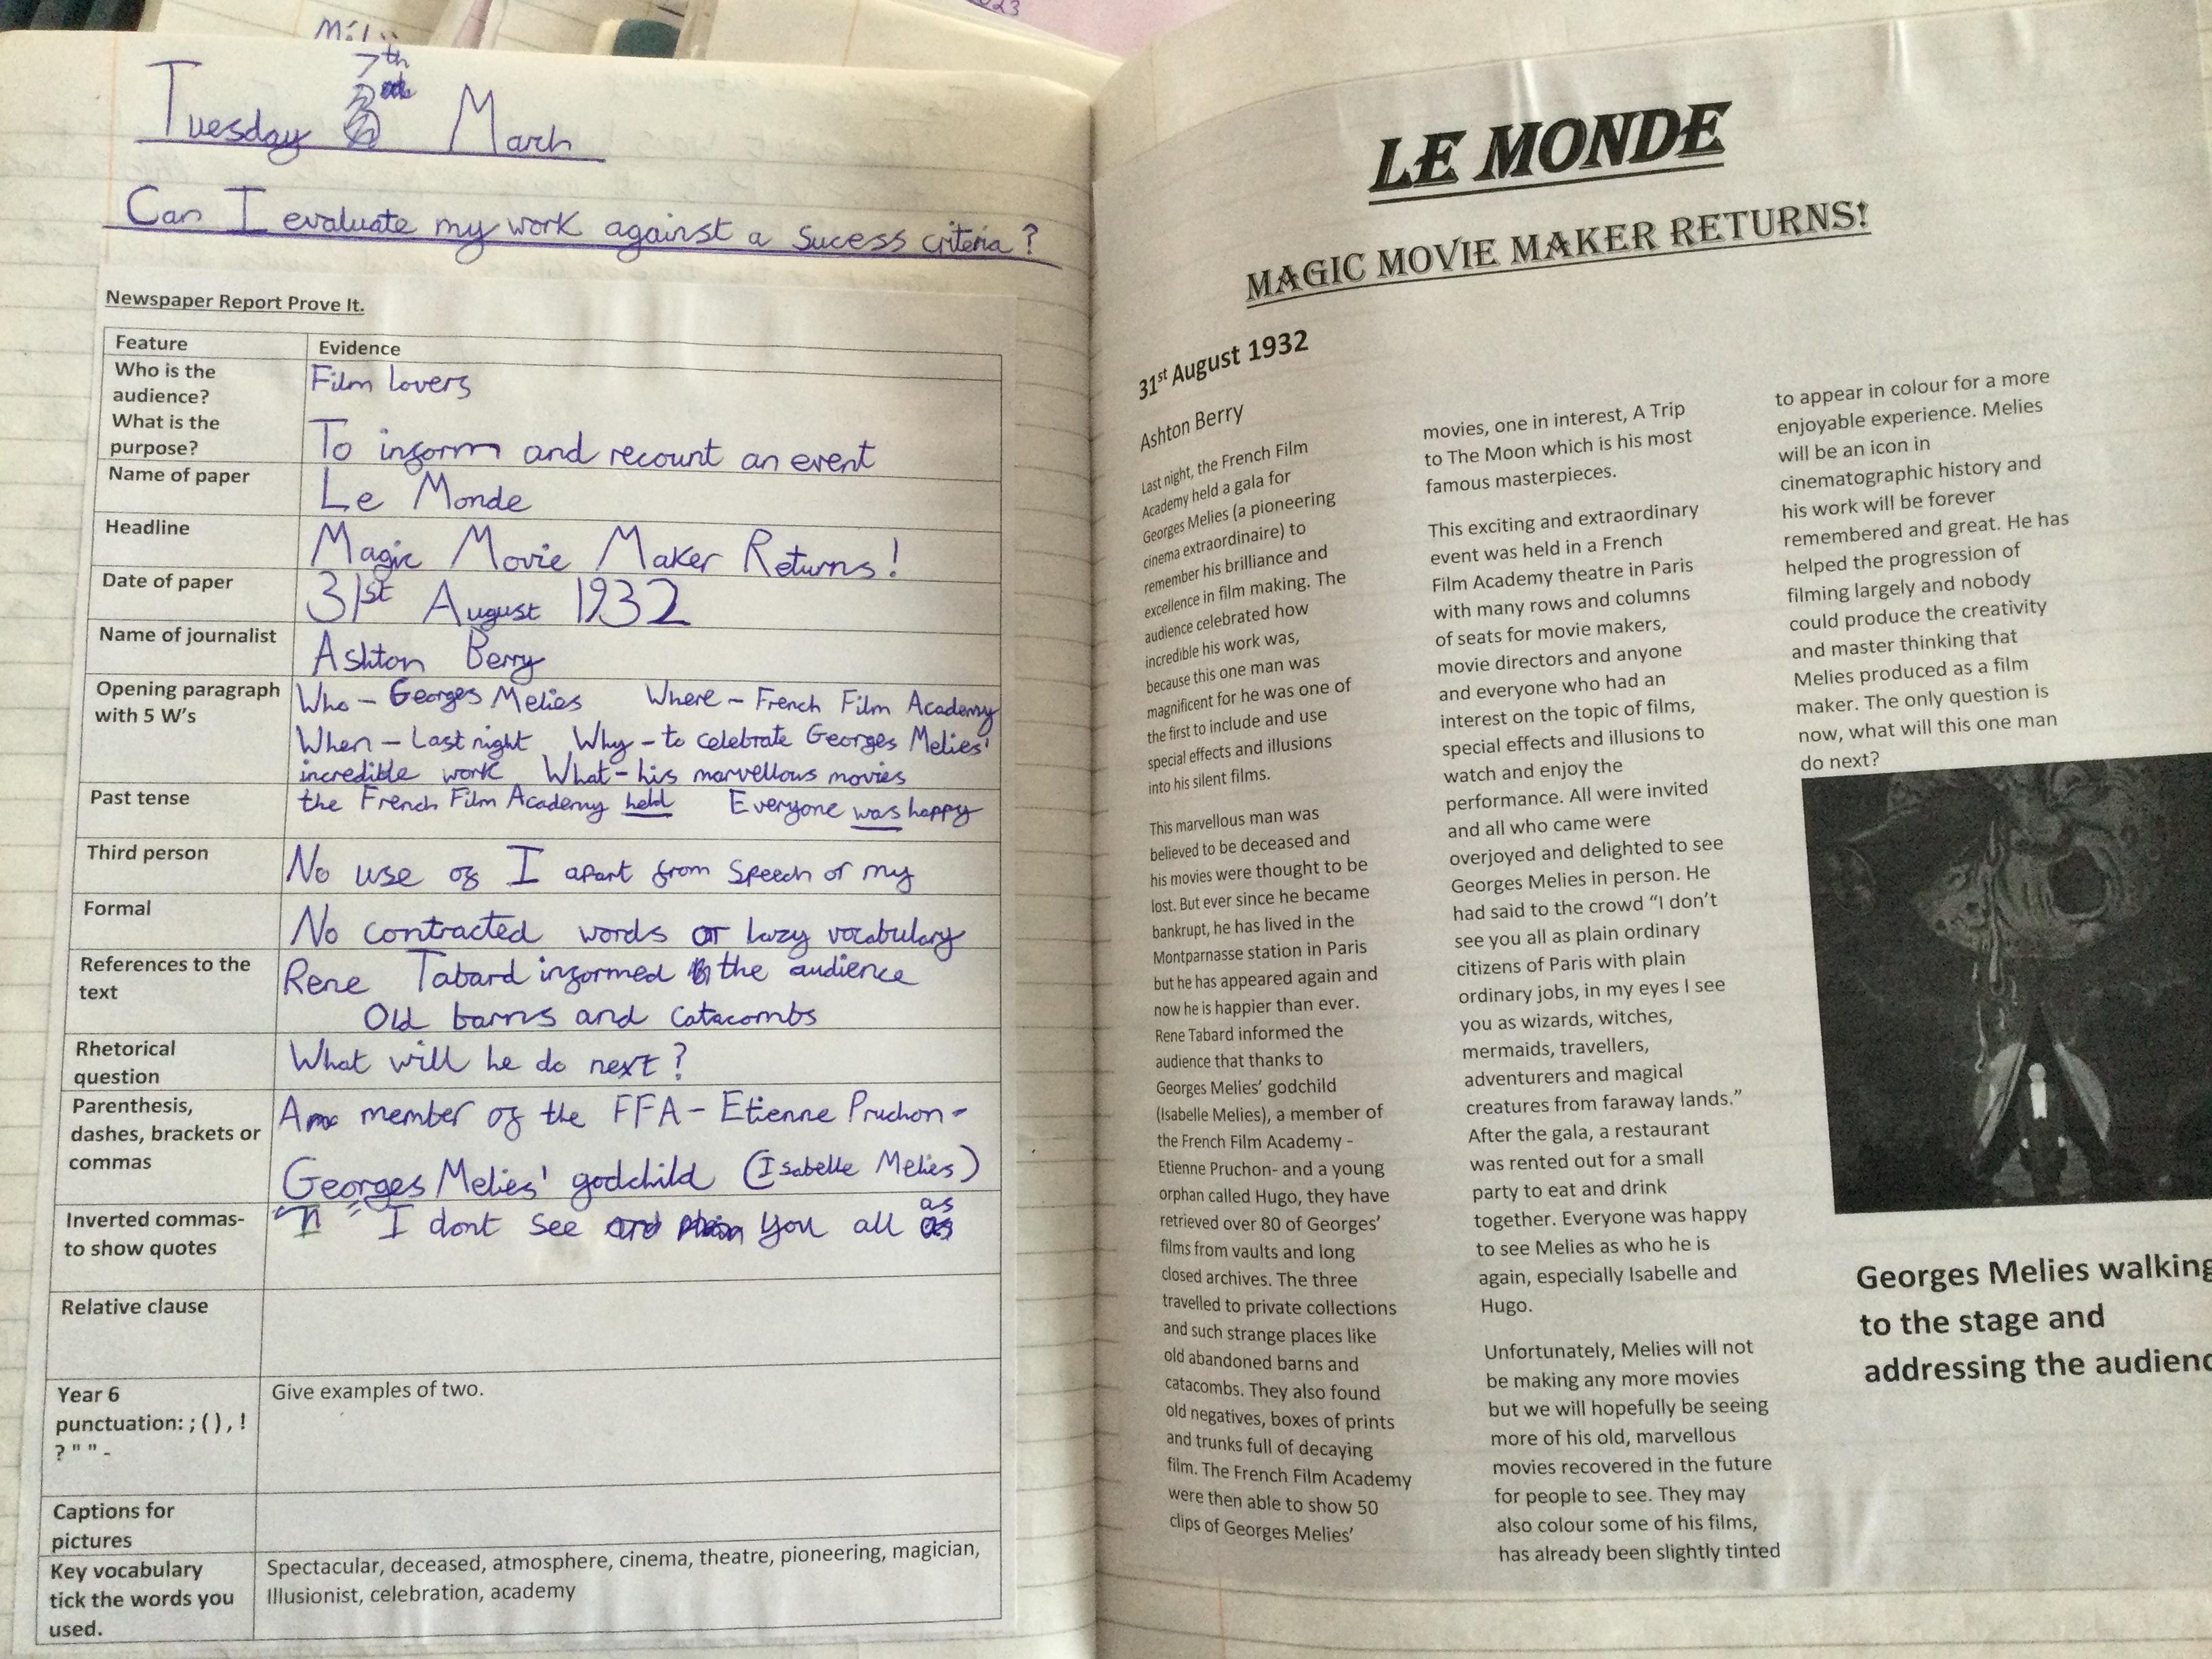 Tuesday 7th March
Can I evaluate my work against a Sucess criteria?
Newspaper Report Prove It.
Feature Evidence
Who is the audience? Film lovers
What is the purpose? To inform and recount an event
Name of paper Le Monde
Headline Magic Movie Maker Returns!
Date of paper 31st August 1932
Name of journalist Ashton Berry
Opening paragraph with 5 W's Who - Georges Melies Where - French Film Academy
When - Last night Why - to celebrate Georges Melies'
incredible work What - his marvellous movies
Past tense the French Film Academy held Everyone was happy
Third person No use of I apart from Speech or my
Formal No contracted words or lazy vocabulary
References to the text Rene Tabard informed the audience
Old barns and catacombs
Rhetorical question What will he do next?
Parenthesis, dashes, brackets or commas A member of the FFA - Etienne Pruchon -
Georges Melies' godchild (Isabelle Melies)
Inverted commas- to show quotes I dont see you all as
Relative clause
Year 6 punctuation: ; ( ) , ! ? " " - Give examples of two.
Captions for pictures
Key vocabulary tick the words you used. Spectacular, deceased, atmosphere, cinema, theatre, pioneering, magician,
Illusionist, celebration, academy
LE MONDE
MAGIC MOVIE MAKER RETURNS!
31st August 1932
Ashton Berry
Last night, the French Film
Academy held a gala for
Georges Melies (a pioneering
cinema extraordinaire) to
remember his brilliance and
excellence in film making. The
audience celebrated how
incredible his work was,
because this one man was
magnificent for he was one of
the first to include and use
special effects and illusions
into his silent films.
This marvellous man was
believed to be deceased and
his movies were thought to be
lost. But ever since he became
bankrupt, he has lived in the
Montparnasse station in Paris
but he has appeared again and
now he is happier than ever.
Rene Tabard informed the
audience that thanks to
Georges Melies' godchild
(Isabelle Melies), a member of
the French Film Academy -
Etienne Pruchon- and a young
orphan called Hugo, they have
retrieved over 80 of Georges'
films from vaults and long
closed archives. The three
travelled to private collections
and such strange places like
old abandoned barns and
catacombs. They also found
old negatives, boxes of prints
and trunks full of decaying
film. The French Film Academy
were then able to show 50
clips of Georges Melies'
movies, one in interest, A Trip
to The Moon which is his most
famous masterpieces.
This exciting and extraordinary
event was held in a French
Film Academy theatre in Paris
with many rows and columns
of seats for movie makers,
movie directors and anyone
and everyone who had an
interest on the topic of films,
special effects and illusions to
watch and enjoy the
performance. All were invited
and all who came were
overjoyed and delighted to see
Georges Melies in person. He
had said to the crowd "I don't
see you all as plain ordinary
citizens of Paris with plain
ordinary jobs, in my eyes I see
you as wizards, witches,
mermaids, travellers,
adventurers and magical
creatures from faraway lands."
After the gala, a restaurant
was rented out for a small
party to eat and drink
together. Everyone was happy
to see Melies as who he is
again, especially Isabelle and
Hugo.
Unfortunately, Melies will not
be making any more movies
but we will hopefully be seeing
more of his old, marvellous
movies recovered in the future
for people to see. They may
also colour some of his films,
has already been slightly tinted
to appear in colour for a more
enjoyable experience. Melies
will be an icon in
cinematographic history and
his work will be forever
remembered and great. He has
helped the progression of
filming largely and nobody
could produce the creativity
and master thinking that
Melies produced as a film
maker. The only question is
now, what will this one man
do next?
Georges Melies walking
to the stage and
addressing the audienc